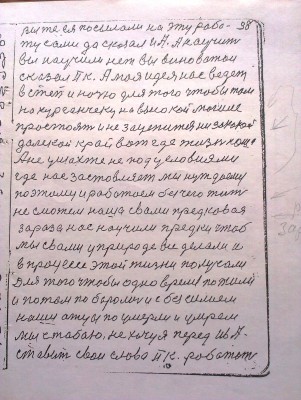 рыте ся посылали на эту рабо- 98
ту сами да сказал И А. А научит
вы научили нет вы виноваты
сказал П К. А моя идея нас ведет
в степ и ночю для того чтобы там
на курганчеку на высокой могиле
простоят и не зацепится ни за какой
далекой край вот где жизнь
А не ушахте не под условиями
где нас заставляет мы нуждаем
поэтому и работаем без чего жит
не сможем наша с вами предковая
зараза нас научили предки чтоб
мы с вами у природе все делали и
в процессе этой жизни получали
для того чтобы одно время пожили
и потом по бароли и с бесилием
наши отцы поумерли и умрем
мы с табаю, не хочуя перед И А-
ставит свои слова П К. работат